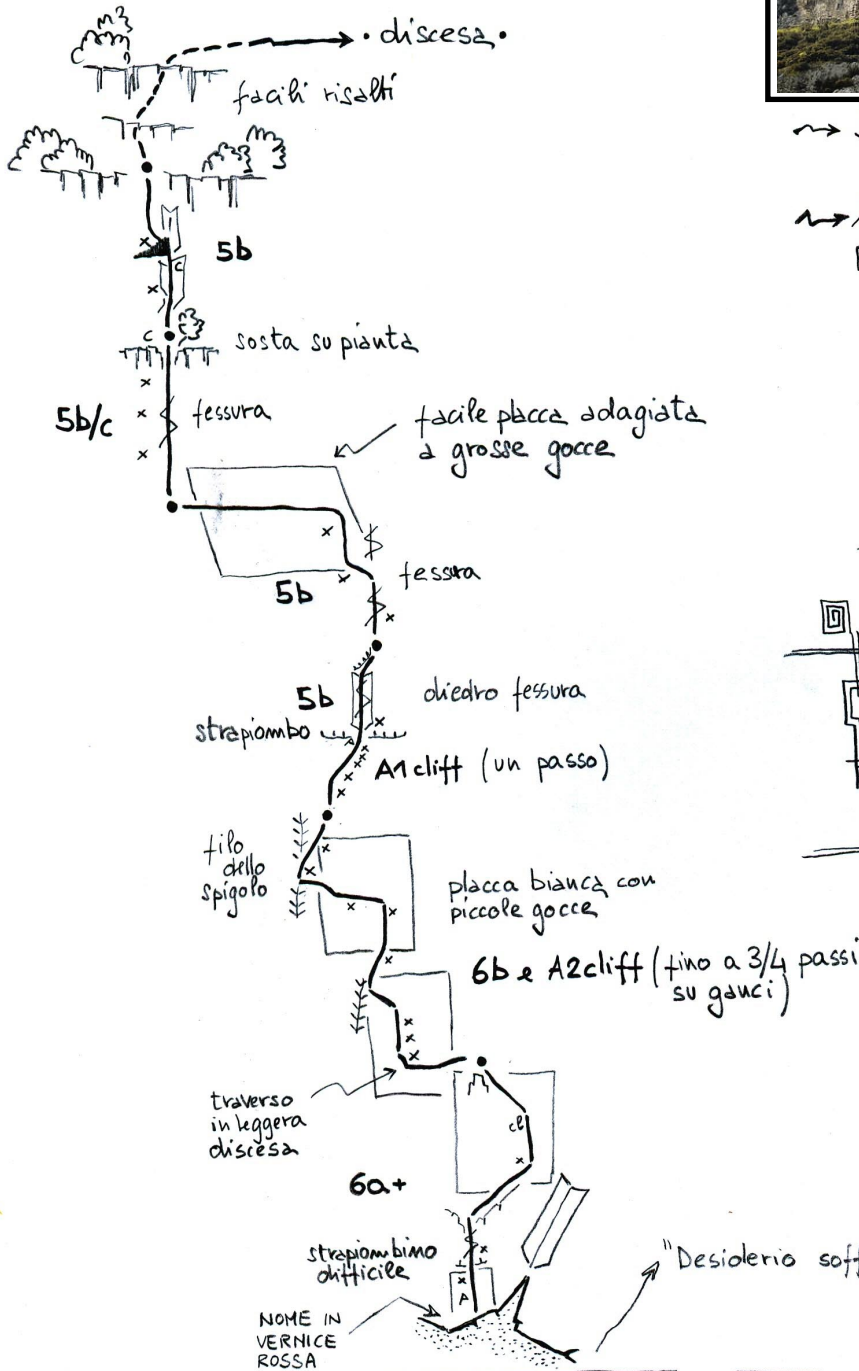 • discesa •
facili risalti
5b
c
c
sosta su pianta
5b/c
fessura
facile placca adagiata
a grosse gocce
5b
fessura
5b
diedro fessura
strapiombo
A
A1 cliff (un passo)
filo
dello
spigolo
placca bianca con
piccole gocce
6b e A2cliff (fino a 3/4 passi
su ganci)
traverso
in leggera
discesa
cl
6a+
strapiombino
difficile
A
"Desiderio soff
NOME IN
VERNICE
ROSSA